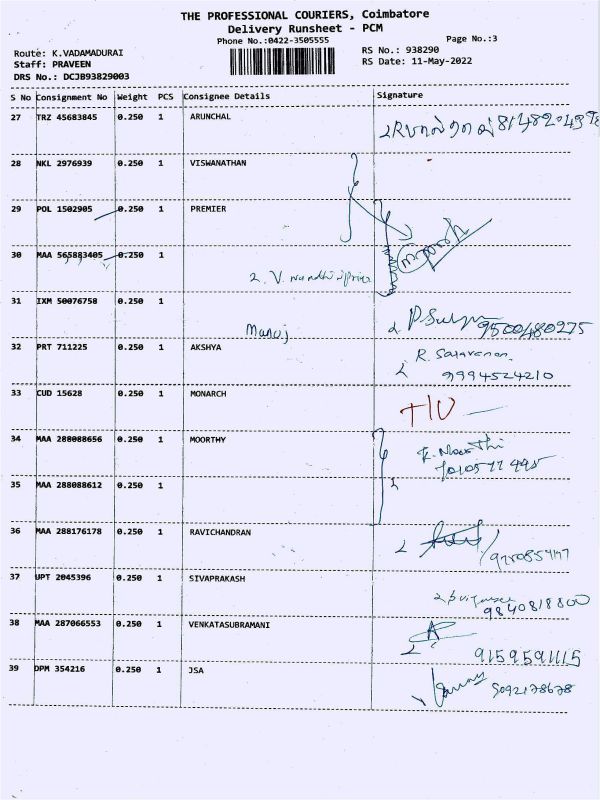 THE PROFESSIONAL COURIERS, Coimbatore
Delivery Runsheet - PCM
Phone No.:0422-3505555
Page No.:3
Route: K.VADAMADURAI
RS No.: 938290
Staff: PRAVEEN
RS Date: 11-May-2022
DRS No.: DCJB93829003
S No Consignment No Weight PCS Consignee Details Signature
27 TRZ 45683845 0.250 1 ARUNCHAL
28 NKL 2976939 0.250 1 VISWANATHAN
29 POL 1502905 0.250 1 PREMIER
30 MAA 565883405 0.250 1
31 IXM 50076758 0.250 1 Manoj 9500480275
32 PRT 711225 0.250 1 AKSHYA R. Saravanan
9994524210
33 CUD 15628 0.250 1 MONARCH
34 MAA 288088656 0.250 1 MOORTHY
35 MAA 288088612 0.250 1
36 MAA 288176178 0.250 1 RAVICHANDRAN
37 UPT 2045396 0.250 1 SIVAPRAKASH
9840818800
38 MAA 287066553 0.250 1 VENKATASUBRAMANI
9159591115
39 DPM 354216 0.250 1 JSA 5092178678